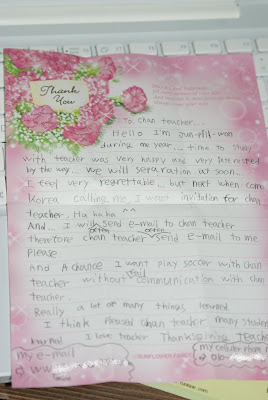 Thank
You
To. Chan teacher...
Hello I'm Jun-pill-won
during me year... time to stay
with teacher was very happy and very interested
by the way... we will separation at soon.
I feel very regrettable... but next when come
Korea calling me, I want invitation for chan
teacher. Ha ha ha ^^
And... I will send e-mail to chan teacher
often often
therefore chan teacher send e-mail to me
please
And A chance I want play soccer with chan
teacher without communication with chan
teacher.
Really a lot or many things learned
I think pleased chan teacher many student
I love teacher Thanksgiving teacher
my e-mail
my cellular phone